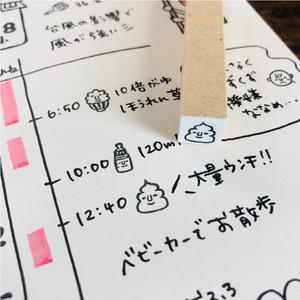 8
台風の影響で
風が強い
6:50 10倍がゆ
ほうれん草
ななめ…
10:00 120m
12:40 大量ウンチ!!
ベビーカーでお散歩